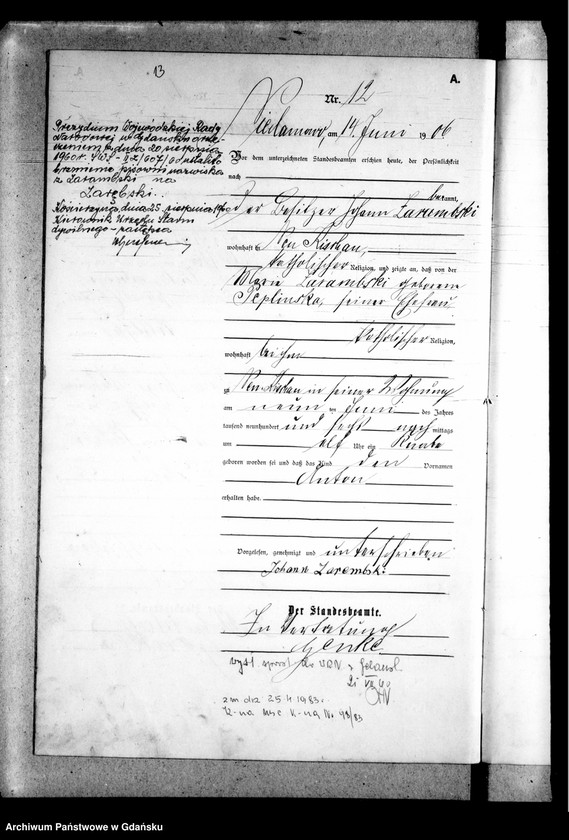 13
A.
Nr. 12
am 14 Juni 1906
Vor dem unterzeichneten Standesbeamten erschien heute, der Persönlichkeit
nach
bekannt,
der Besitzer Johann Zarembski
wohnhaft in Neu Kischau,
katholischer Religion, und zeigte an, daß von der
Zarembski geborene
seiner Ehefrau
katholischer Religion,
wohnhaft bei ihm
in Neu Kischau in seiner Wohnung
am neun ten Juni des Jahres
tausend neunhundert und sechs nachmittags
um elf Uhr ein Knabe
geboren worden sei und daß das Kind den Vornamen
Anton
erhalten habe.
Vorgelesen, genehmigt und unterschrieben
Johann Zarembski
Der Standesbeamte.
In Vertretung
Prezydium Wojewódzkiej Rady
Narodowej w Gdańsku
z dnia 20 sierpnia
1960 r.
brzmienie i pisownię nazwiska
z Zarembski na
Zarębski.
Kościerzyna, dnia 25 sierpnia 1960
Kierownik Urzędu Stanu
Cywilnego
zm dra 25 4 1983 r.
Archiwum Państwowe w Gdańsku